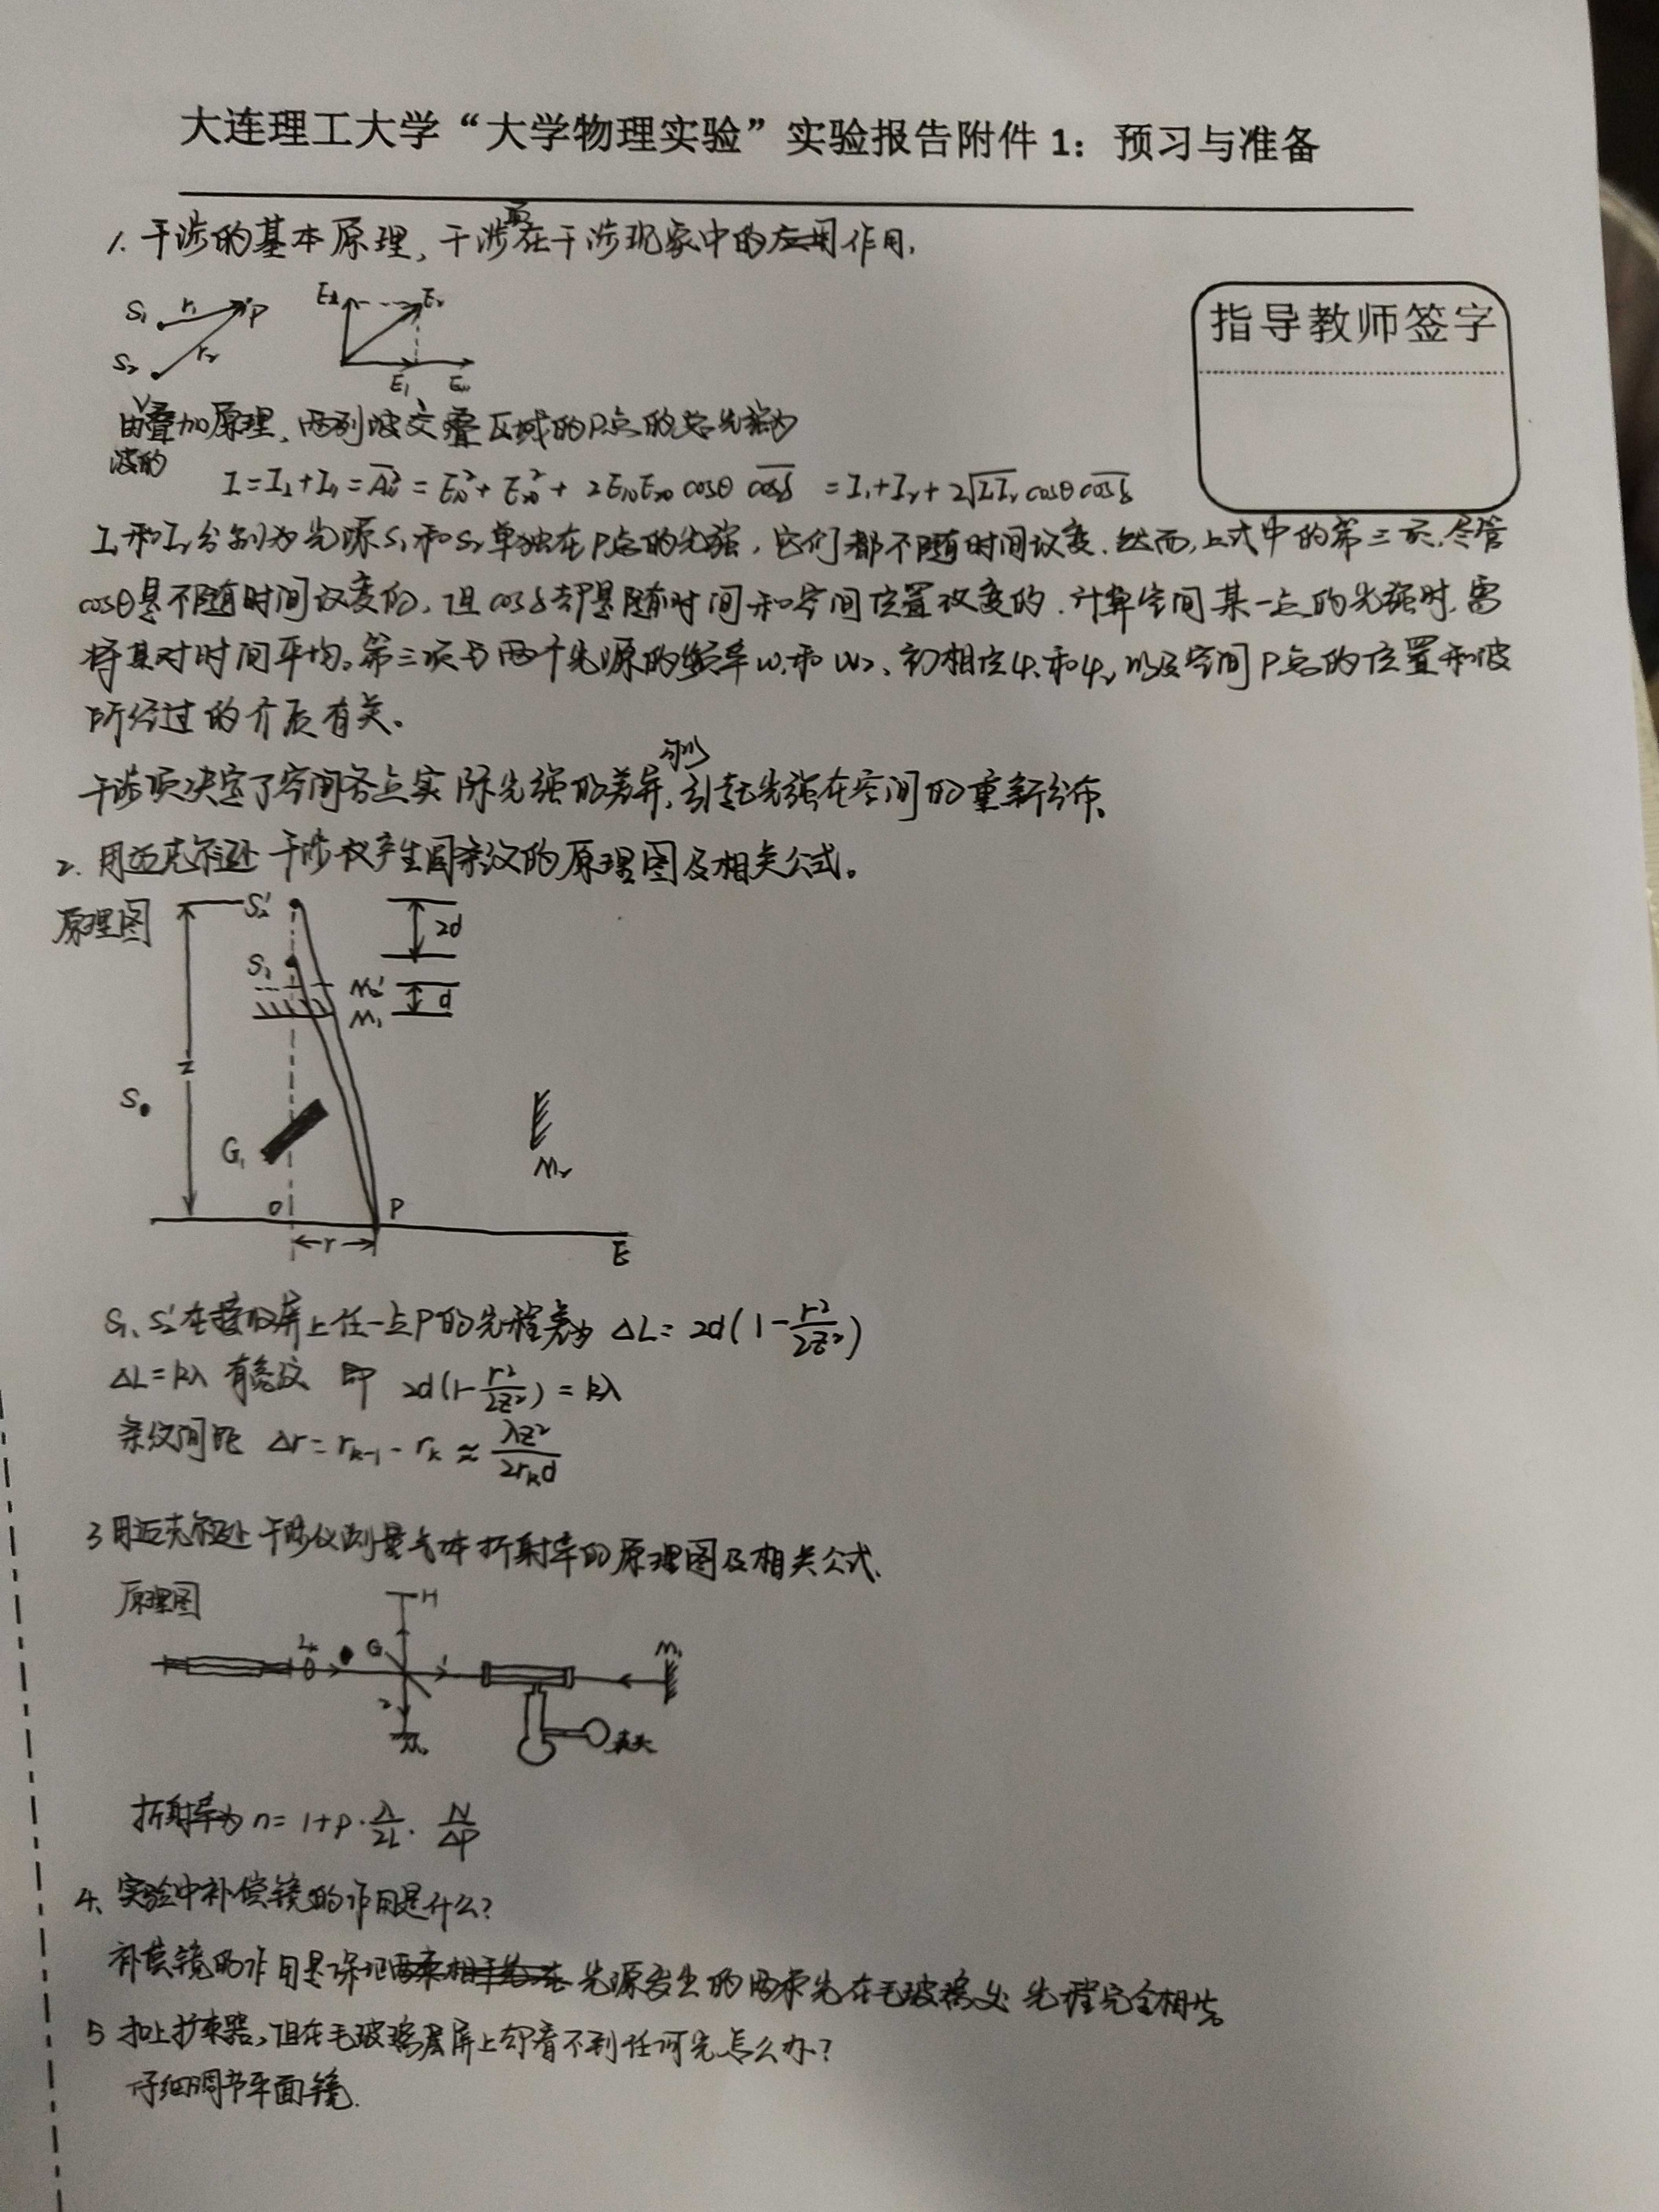 大连理工大学“大学物理实验”实验报告附件1：预习与准备
1. 干涉的基本原理，干涉项在干涉现象中的作用.
指导教师签字
S₁ r₁ P
S₂ r₂
E₁
由波的叠加原理，两列波交叠区域的P点的总光强为
I₁和I₂分别为光源S₁和S₂单独在P点的光强，它们都不随时间改变.然而,上式中的第三项,尽管
cosθ是不随时间改变的，但cosδ却是随时间和空间位置改变的.计算空间某一点的光强时,需
将其对时间平均。第三项与两个光源的频率ω₁和ω₂、初相位φ₁和φ₂,以及空间P点的位置和波
所经过的介质有关。
干涉项决定了空间各点实际光强的差异,引起光强在空间的重新分布.
2. 用迈克尔逊干涉仪产生圆条纹的原理图及相关公式。
原理图
S₂′
2d
S₁
M₂′ d
M₁
Z
S
G₁
M₂
O P
r
E
S₁、S₂′在接收屏上任一点P的光程差为 ΔL= 2d(1-r²/2Z²)
ΔL=kλ 有亮纹 即 2d(1-r²/2Z²)=kλ
条纹间距 Δr= rₖ₋₁-rₖ ≈ λZ²/2rₖd
3 用迈克尔逊干涉仪测量气体折射率的原理图及相关公式.
原理图
H
G
M₁
1
2
折射率为 n= 1+p·λ/2L·N/Δp
4、实验中补偿镜的作用是什么?
补偿镜的作用是保证光源发出的两束光在毛玻璃处光程完全相等。
5 扣上扩束器，但在毛玻璃屏上却看不到任何光怎么办?
仔细调节平面镜.